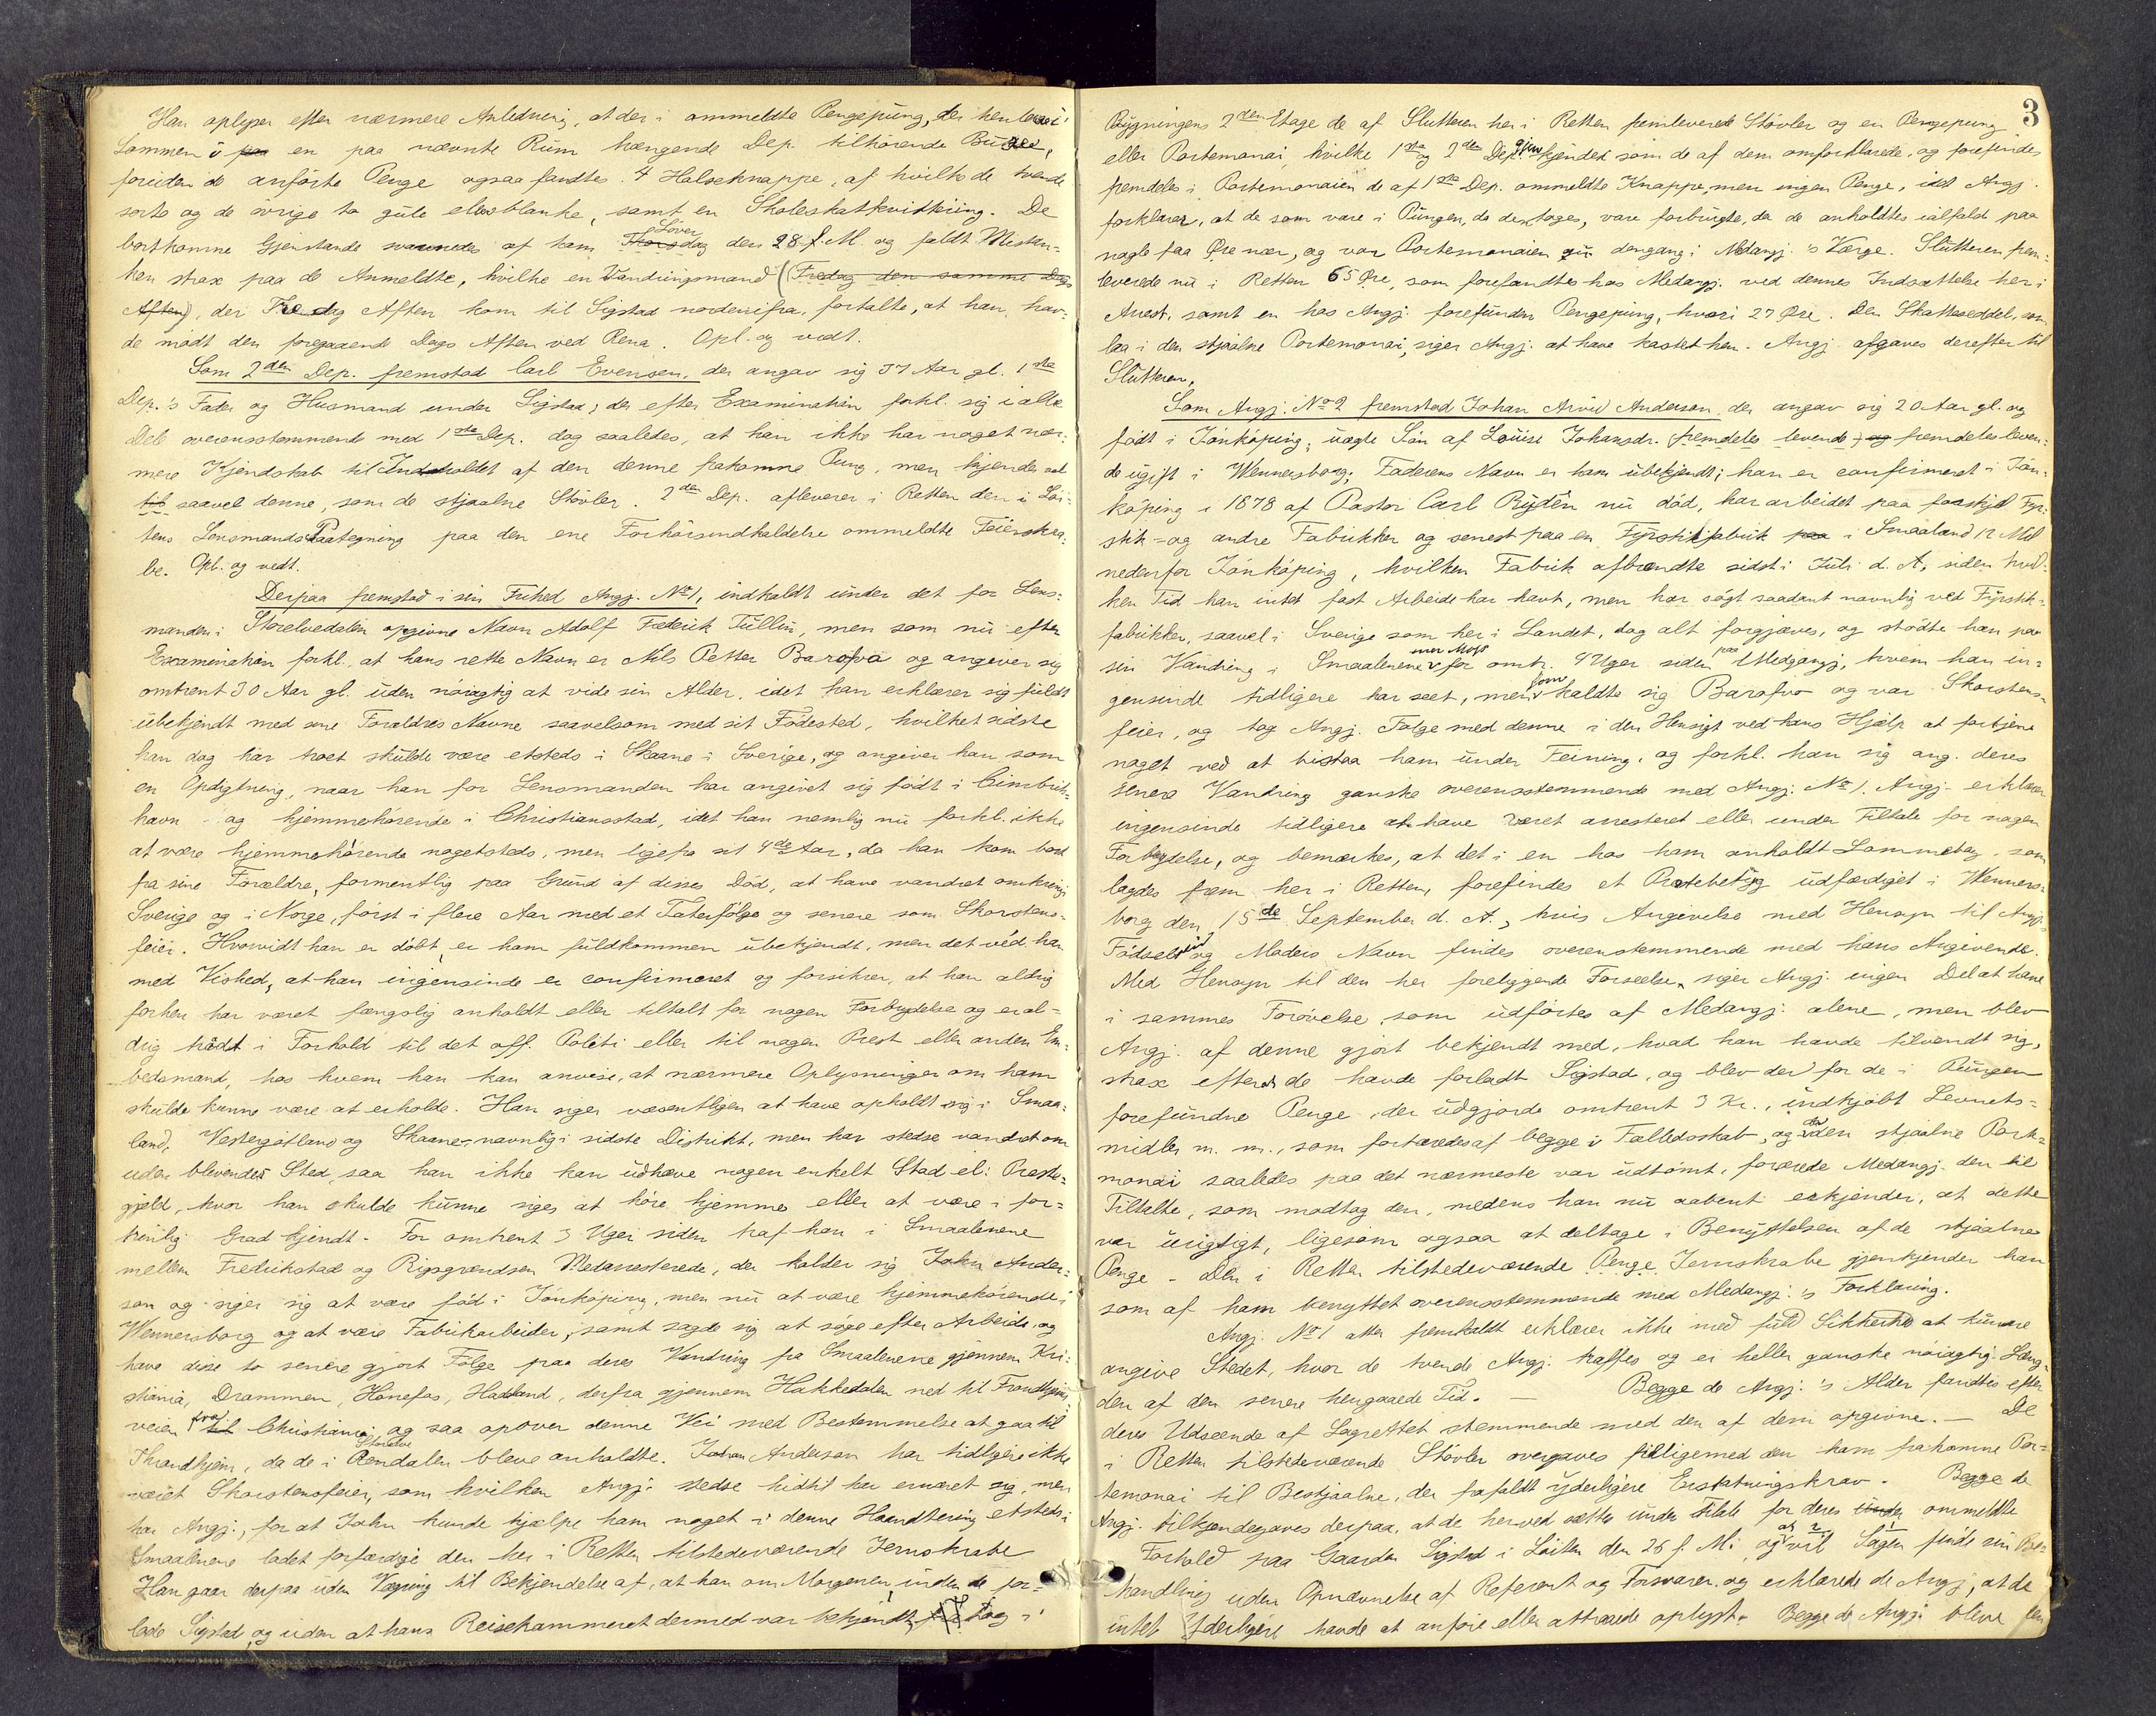 Han oplyser efter nærmere Anledning, at der i ommeldte Pengepung, der henlaa i
Lommen i en paa nævnte Rum hængende Dep. tilhørende Buxe,
foruden de anførte Penge ogsaa fandtes 4 Halseknappe, af hvilke de tvende
sorte og de øvrige to gule elos blanke, samt en Skoleskatkvittering. De
bortkomne Gjenstande savnedes af ham Løverdag den 28 f. M. og faldt Mistan-
ken strax paa de Anmeldte, hvilke en Vandringsmand (Fredag den samme Dags
Aften), der Tredag Aften kom til Sigstad nordenifra, fortalte, at han hav-
de mødt den foregaaende Dags Aften ved Rena. Opl. og vedt.
Som 2den Dep. fremstod Carl Evensen, der angav sig 57 Aar gl. 1ste
Dep.'s Fader og Husmand under Sigstad; der efter Examination forkl. sig i alle
Dele overensstemmende med 1ste Dep. dog saaledes, at han ikke har noget nær-
mere Kjendskab til Indholdet af den denne frakomne Pung, men kjender vel
til saavel denne, som de stjaalne Støvler. 2den Dep. afleverer i Retten den i Löi-
tens Lensmands Paategning paa den ene Forhørsindkaldelse ommeldte Feierskra-
be. Opl. og vedt.
Derpaa fremstod i sin Frihed Angj. No 1, indkaldt under det for Lens-
manden i Storelvedalen opgivne Navn Adolf Frederik Tullin, men som nu efter
Examination forkl. at hans rette Navn er Nils Petter Barofva og angiver sig
omtrent 30 Aar gl. uden nøiagtig at vide sin Alder, idet han erklærer sig fuldt
ubekjendt med sine Forældres Navne saavelsom med sit Fødested, hvilket sidste
han dog har troet skulde være etsteds i Skaane i Sverige, og angiver han som
en Opdigtning, naar han for Lensmanden har angivet sig født i Cimbrits-
havn og hjemmehørende i Christiansstad, idet han nemlig nu forkl. ikke
at være hjemmehørende nogetsteds, men ligefra sit 4de Aar, da han kom bort
fra sine Forældre, formentlig paa Grund af disses Død, at have vandret omkring i
Sverige og i Norge, først i flere Aar med et Taterfølge og senere som Skorstens-
feier. Hvorvidt han er døbt, er ham fuldkommen ubekjendt, men det véd han
med Vished, at han ingensinde er confirmeret og forsikrer, at han aldrig
forhen har været fængslig anholdt eller tiltalt for nogen Forbrydelse og er al-
drig traadt i Forhold til det off. Politi eller til nogen Prest eller anden Em-
bedsmand, hos hvem han kan anvise, at nærmere Oplysninger om ham
skulde kunne være at erholde. Han siger væsentligen at have opholdt sig i Smaa-
land, Vestergötland og Skaane, navnlig i sidste Distrikt, men har stedse vandret om
uden blivendes Sted, saa han ikke kan udhæve nogen enkelt Stad el: Præste-
gjeld, hvor han skulde kunne siges at høre hjemme eller at være i for-
trinlig Grad kjendt. For omtrent 3 Uger siden traf han i Smaalenene
mellem Fredrikstad og Rigsgrændsen Medarresterede, der kalder sig John Ander-
son og siger sig at være fød i Jönköping, men nu at være hjemmehørende i
Wennersborg og at være Fabrikarbeider, samt sagde sig at søge efter Arbeide, og
have disse to senere gjort Følge paa deres Vandring fra Smaalenene gjennem Kri-
stiania, Drammen, Hønefos, Hadeland, derfra gjennem Hakkedalen ned til Trondhjems-
veien fra til Christiania og saa opover denne Vei med Bestemmelse at gaa til
Throndhjem, da de i Storelve Rendalen bleve anholdte. Johan Anderson har tidligere ikke
været Skorstensfeier, som hvilken Angj. stedse hidtil har ernæret sig, men
har Angj., for at John kunde hjælpe ham noget i denne Haandtering etsteds i
Smaalenene ladet forfærdige den her i Retten tilstedeværende Jernskrabe
Han gaar derpaa uden Vægring til Bekjendelse af, at han om Morgenen, inden de for-
lode Sigstad og uden at hans Reisekammeret dermed var bekjendt, tog i
3
Bygningens 2den Etage de af Slutteren her i Retten fremleverede Støvler og en Pengepung
eller Portemonai, hvilke 1ste og 2den Dep. gjenkjender som de af dem omforklarede, og forefindes
fremdeles i Portemonaien de af 1ste Dep. ommeldte Knappe, men ingen Penge, idet Angj.
forklarer, at de som vare i Pungen, da den toges, vare forbrugte, da de anholdtes ialfald paa
nogle faa Øre nær, og var Portemonaien dengang i Medangj.'s Værge. Slutteren frem-
leverede nu i Retten 65 Øre, som forefandtes hos Medangj. ved dennes Indsættelse her i
Arrest, samt en hos Angj. forefunden Pengepung, hvori 27 Øre. Den Skatteseddel, som
laa i den stjaalne Portemonai, siger Angj. at have kastet hen. Angj. afgaves derefter til
Slutteren.
Som Angj. No 2 fremstod Johan Arvid Anderson der angav sig 20 Aar gl. og
født i Jönköping, uægte Søn af Louise Johansdr. (fremdeles levende) og fremdeles leven-
de ugift i Wennersborg; Faderens Navn er ham ubekjendt; han er confirmeret i Jön-
köping i 1878 af Pastor Carl Rydén nu død, har arbeidet paa forskjel Fyr-
stik- og andre Fabrikker og senest paa en Fyrstikfabrik paa i Smaaland 12 Mil
nedenfor Jönköping, hvilken Fabrik afbrændte sidst i Juli d. A., siden hvil-
ken Tid han intet fast Arbeide har havt, men har søgt saadant navnlig ved Fyrstik-
fabrikker, saavel i Sverige som her i Landet, dog alt forgjæves, og stødte han paa
sin Vandring i Smaalenene nær Moss for omtr. 4 Uger siden paa Medgangj, hvem han in-
gensinde tidligere har seet, men som kaldte sig Barofvo og var Skorstens-
feier, og tog Angj. Følge med denne i den Hensigt ved hans Hjælp at fortjene
noget ved at bistaa ham under Feining, og forkl. han sig ang. deres
senere Vandring ganske overensstemmende med Angj. No 1. Angj. erklærer
ingensinde tidligere at have været arresteret eller under Tiltale for nogen
Forbrydelse, og bemærkes, at det i en hos ham anholdt Lommebog, som
lagdes frem her i Retten, forefindes et Prestebetyg udfærdiget i Wenners-
borg den 15de September d. A., hvis Angivelse med Hensyn til Angj.s
Fødselstid og Moders Navn findes overenstemmende med hans Angivende.
Med Hensyn til den her foreliggende Forseelse, siger Angj. ingen Del at have
i sammes Forøvelse, som udførtes af Medangj. alene, men blev
Angj. af denne gjort bekjendt med, hvad han havde tilvendt sig,
strax efterat de havde forladt Sigstad, og blev der for de i Pungen
forefundne Penge, der udgjorde omtrent 3 Kr., indkjøbt Levnets-
midler m. m., som fortæredes af begge i Fælledsskab, og da den stjaalne Port-
monai saaledes paa det nærmeste var udtømt, forærede Medangj. den til
Tiltalte, som modtog den, medens han nu aabent erkjender, at dette
var urigtigt, ligesom ogsaa at deltage i Benyttelsen af de stjaalne
Penge. Den i Retten tilstedeværende Penge Jernskrabe gjenkjender han
som af ham benyttet overensstemmende med Medangj.'s Forklaring.
Angj. No 1 atter fremkaldt erklærer ikke med fuld Sikkerhed at kunne
angive Stedet, hvor de tvende Angj. traffes og ei heller ganske nøiagtig Læng-
den af den senere hengaaede Tid. — Begge de Angj.'s Alder fandtes efter
deres Udseende af Lagrettet stemmende med den af dem opgivne. — De
i Retten tilstedeværende Støvler overgaves tilligemed den ham frakomne Por-
temonai til Bestjaalne, der frafaldt yderligere Erstatningskrav. Begge de
Angj. tilkjendegaves derpaa, at de herved sættes under Tiltale for deres under ommeldte
Forhold paa Gaarden Sigstad i Löiten den 26 f. M. og at vil Sagen finde sin Be-
handling uden Opnævnelse af Referent og Forsvarer, og erklærede de Angj., at de
intet Yderligere havde at anføre eller attraaede oplyst. Begge de Angj. bleve